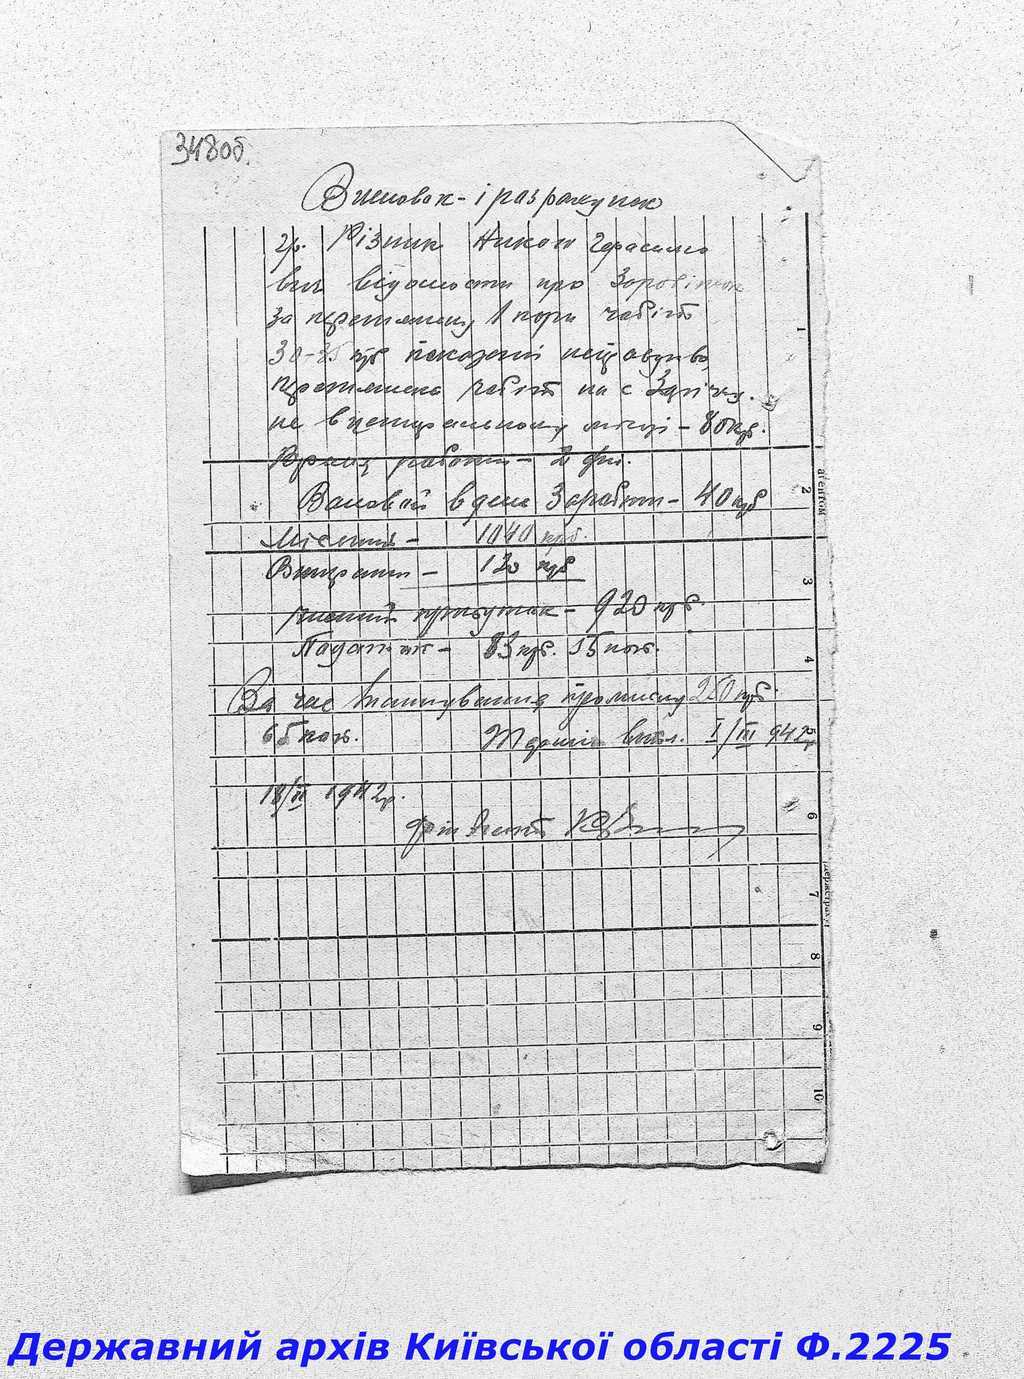 348об.
Висновок - і разрахунок
гр. Різник Никон Герасимо
вич відомости про Заробіток
за перетяжку 1 пари чобіт
30-35 крб показані неправдиво,
перетяжка чобіт на с
не в центральному місці - 80 крб.
работи - 2 дні.
Валовий в день Заработок - 40 крб
Місячний - 1040 крб.
Витрати - 120 крб
Чистий прибуток - 920 крб.
Податок - 83 крб. 55 коп.
За час існування промислу 250 крб.
65 коп. Термін випл. I/III 942 р
18/II 1942 р.
фін Агент
1
2
3
4
5
6
7
8
9
10
агентом
Державний архів Київської області Ф.2225